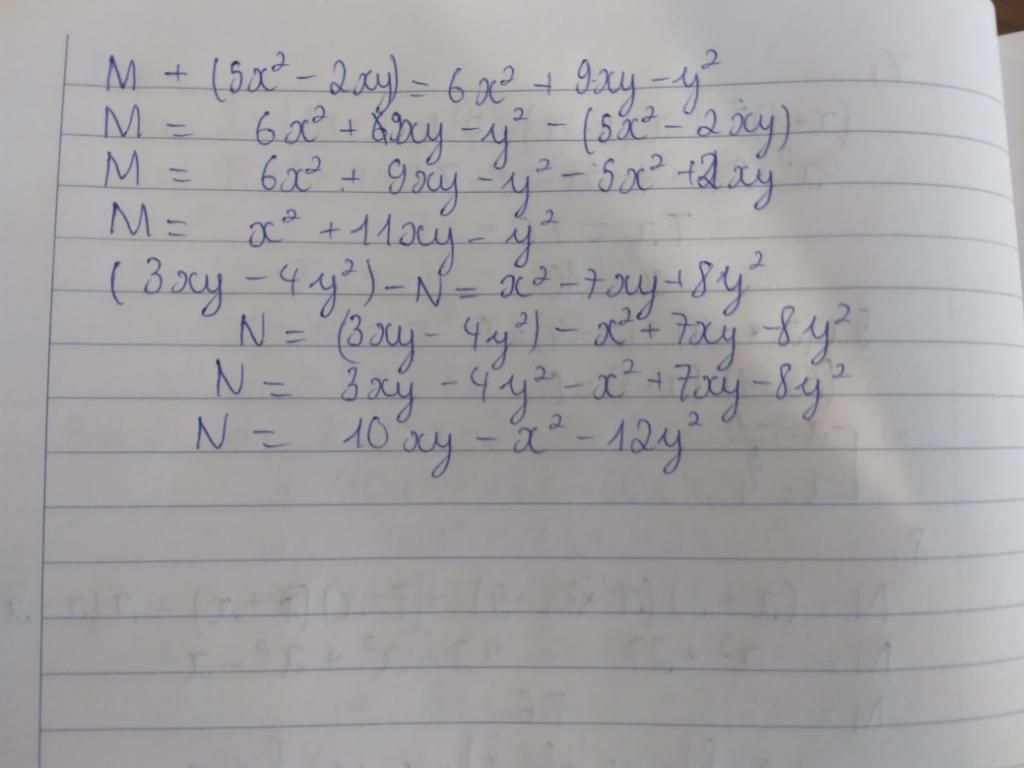 M + (5x² - 2xy) = 6x² + 9xy - y²
M = 6x² + 9xy - y² - (5x² - 2xy)
M = 6x² + 9xy - y² - 5x² + 2xy
M = x² + 11xy - y²
(3xy - 4y²) - N = x² - 7xy + 8y²
N = (3xy - 4y²) - x² + 7xy - 8y²
N = 3xy - 4y² - x² + 7xy - 8y²
N = 10xy - x² - 12y²